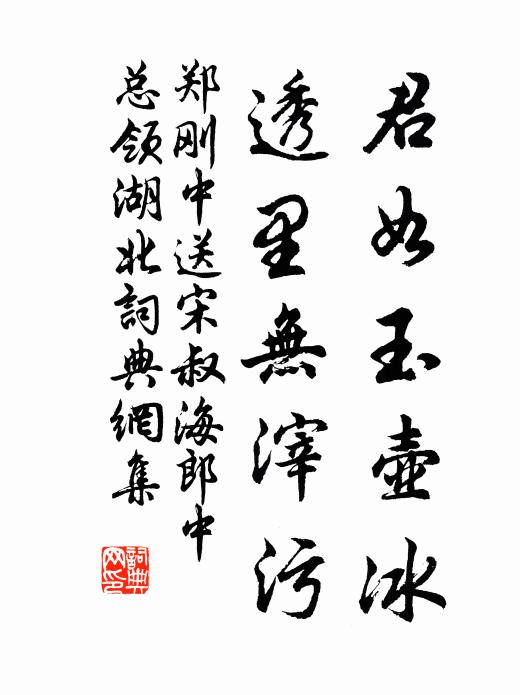 君如玉壶冰
透里無滓污
郑刚中送宋叔海郎中
总领湖北詞典網集
詞典网印